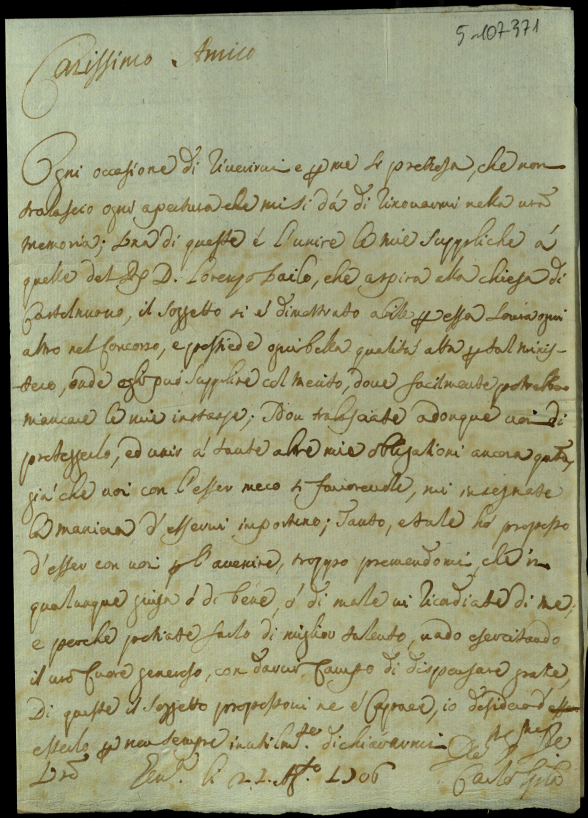 5-107-371
Carissimo Amico
Ogni occasione di riverirui e p me si pretiosa, che non
tralascio ogni apertura che mi si dà di rinouarmi nella vrã
memoria; Una di queste è l'unire le mie suppliche à
quelle del D. Lorenzo, che aspira alla chiesa di
Castelnuouo, il soggetto si è dimostrato abile p essa soura ogni
altro nel Concorso, e possiede ogni bella qualità atta p tal minis-
tero, onde egli può supplire col merito, doue facilmente potrebbero
mancare le mie instanze; Non tralasciate adonque uoi di
proteggerlo, ed unir à tante altre mie obligationi ancora questa,
già che uoi con l'esser meco si fauoreuole, mi insegnate
la maniera d'esserui importuno; Tanto, e tale hò proposto
d'esser con uoi p l'auenire, troppo premendomi, che in
qualunque guisa ò di bene, ò di male ui ricordiate di me;
e perche possiate farlo di miglior talento, uado esercitando
il urõ Cuore generoso, con darui Campo di dispensare gratie,
Di queste il soggetto propostoui ne è Capace, io desidero
esserlo p non sempre inutilmte dichiararmi
li 22 Agto 1706
Carlo